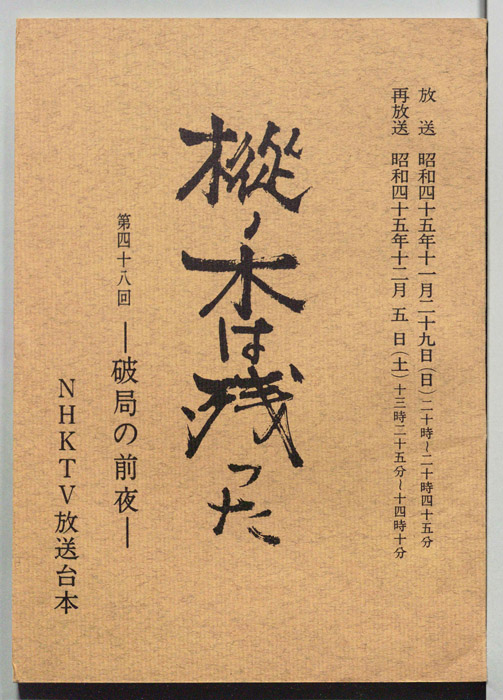 放送 昭和四十五年十一月二十九日(日)二十時~二十時四十五分
再放送 昭和四十五年十二月五日(土)十三時二十五分~十四時十分
樅ノ木は残った
第四十八回 ―破局の前夜―
NHKTV放送台本